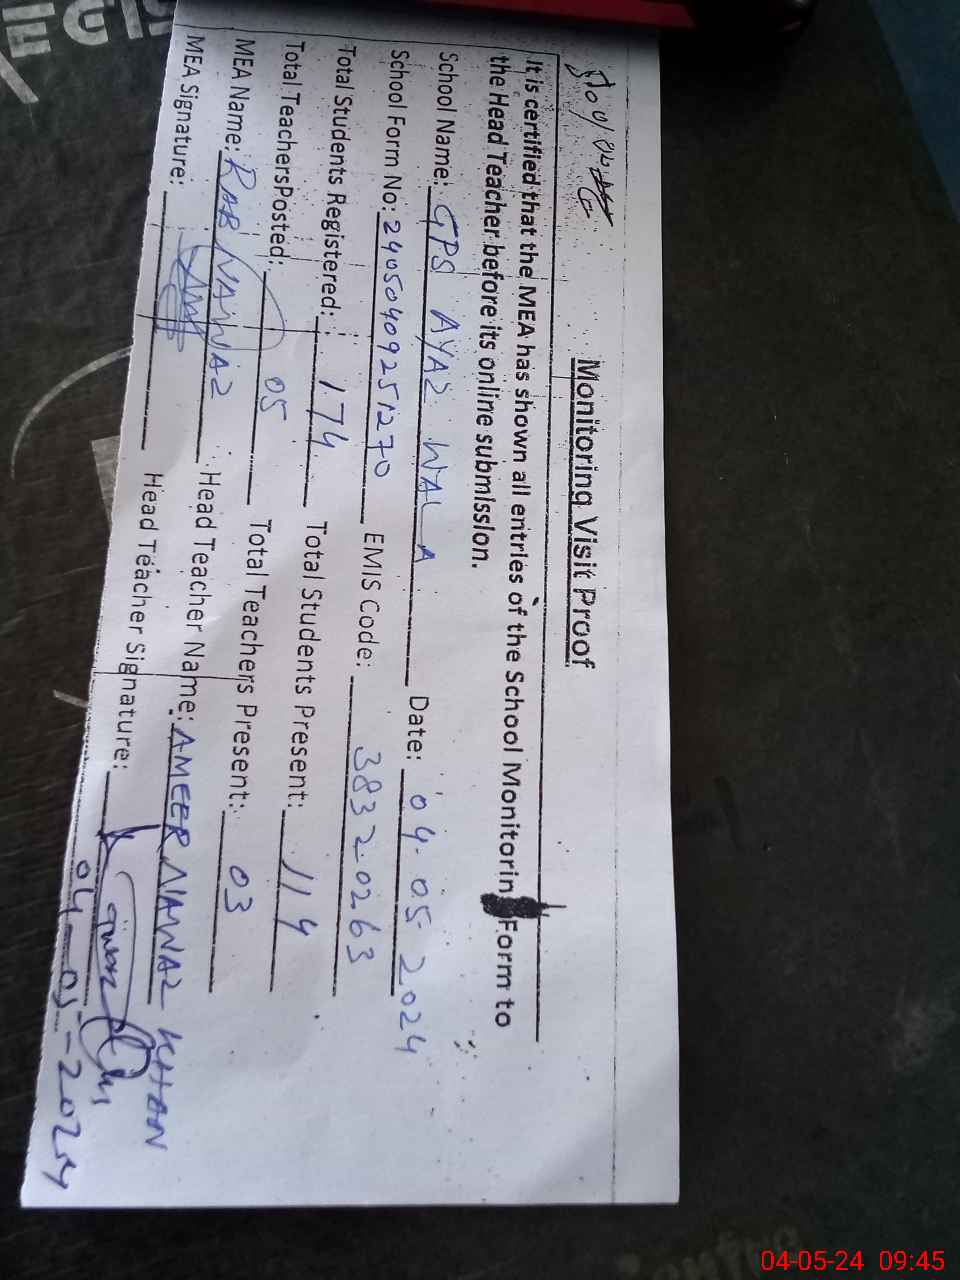 Monitoring Visit Proof
It is certified that the MEA has shown all entries of the School Monitorin Form to
the Head Teacher before its online submission.
School Name: GPS AYAZ WALA Date: 04.05.2024
School Form No: 24050409251270 EMIS Code: 38320263
Total Students Registered: 174 Total Students Present: 114
Total TeachersPosted: 05 Total Teachers Present: 03
MEA Name: RAB NAWAZ Head Teacher Name: AMEER NAWAZ KHAN
MEA Signature: Head Teacher Signature:
04-05-2024
04-05-24 09:45